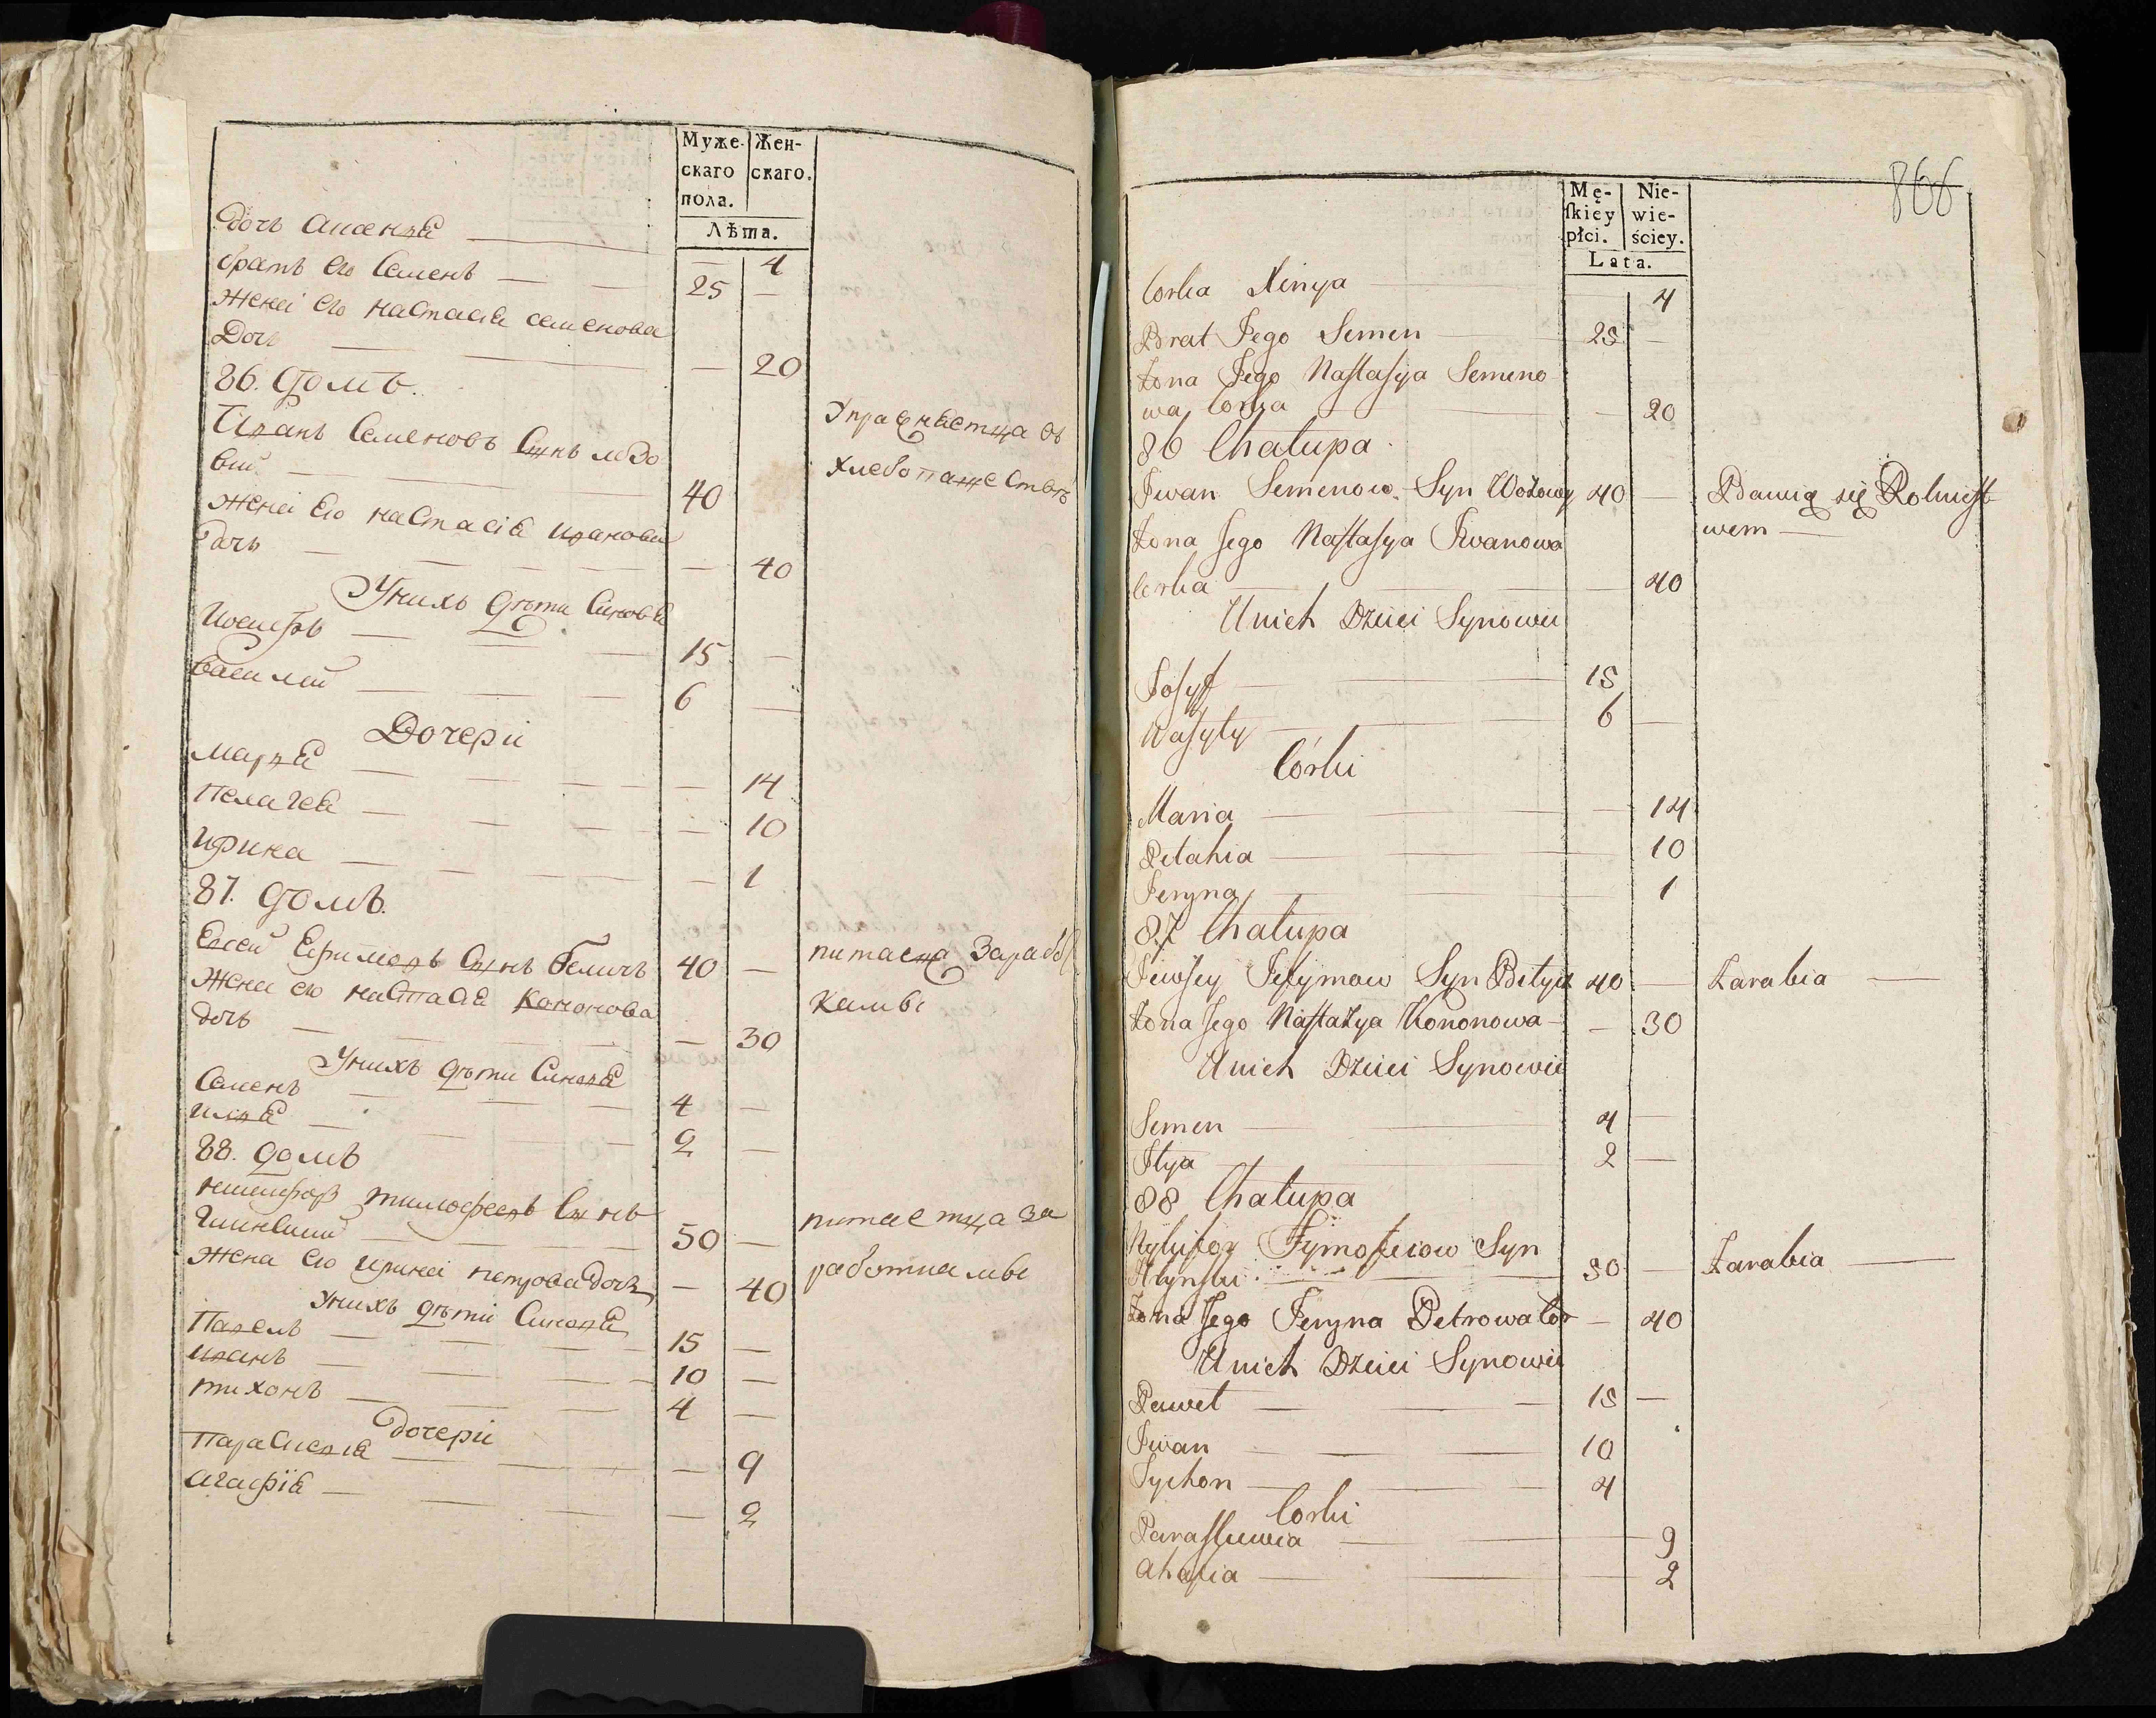 Муже- Жен-
скаго скаго.
пола.
Лѣта.
Дочь Аксенія — — 4
братъ его Семенъ — — 25 —
Жена его настасіа семенова
Дочь — — — 20
86. Домъ.
Иванъ Семеновъ Сынъ
вий — 40 Упражняетца въ
хлебопашествѣ
жена его настасіа иванова
дочь — — — 40
Унихъ дѣти Синовья
Иосифъ — — 15 —
василий — — 6 —
Дочери
Маріа — — — 14
Пелагея — — — 10
ирина — — — 1
87. домъ.
Евсей Ефимовъ Сынъ беличъ 40 — питаетца Зарабо
жена его настасіа Кононова
дочь — — 30
Унихъ дѣти Синовья
Семенъ — — 4 —
илья — — 2 —
88. домъ
никифоръ тимофеевъ Сынъ
50 — питаетца за
жена его ирина петрова дочь — 40 работками
Унихъ дѣти Синовья
Павелъ — — 15 —
иванъ — — 10 —
тихонъ — — 4 —
дочери
Парасковіа — — — 9
агафіа — — — 2
866
Mę- Nie-
ſkiey wie-
płci. ściey.
Lata.
Corka Xinya — 4
Brat Jego Semen — 25 —
Żona Jego Nastasya Semeno
wa Corka — — 20
86 Chałupa
Jwan Semenow Syn Wozowy 40 — Bawią się Rolnicst
wem —
Żona Jego Nastasya Jwanowa
Corka — — 40
Unich Dzieci Synowie
Josyf — 15
Wasyly — 6 —
Córki
Maria — — 14
Pelahia — — 10
Jeryna — — 1
87 Chałupa
Jewsey Jefymow Syn Belycz 40 — Zarabia —
Żona Jego Nastazya Kononowa — — 30
Unich Dzieci Synowie
Semen — 4 —
Jlya — 2 —
88 Chałupa
Nykifor Tymofeiow Syn
Hlynski — 50 — Zarabia —
Żona Jego Jeryna Petrowa Cór — 40
Unich Dzieci Synowie
Paweł — 15 —
Jwan — 10
Tychon — 4
Corki
Paraskiewia — — 9
Ahafia — — 2